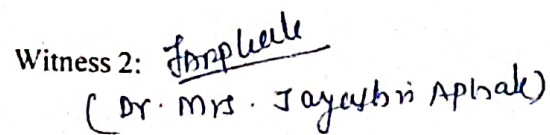 Witness 2:
( Dr. Mrs. Jayashri Aphale)